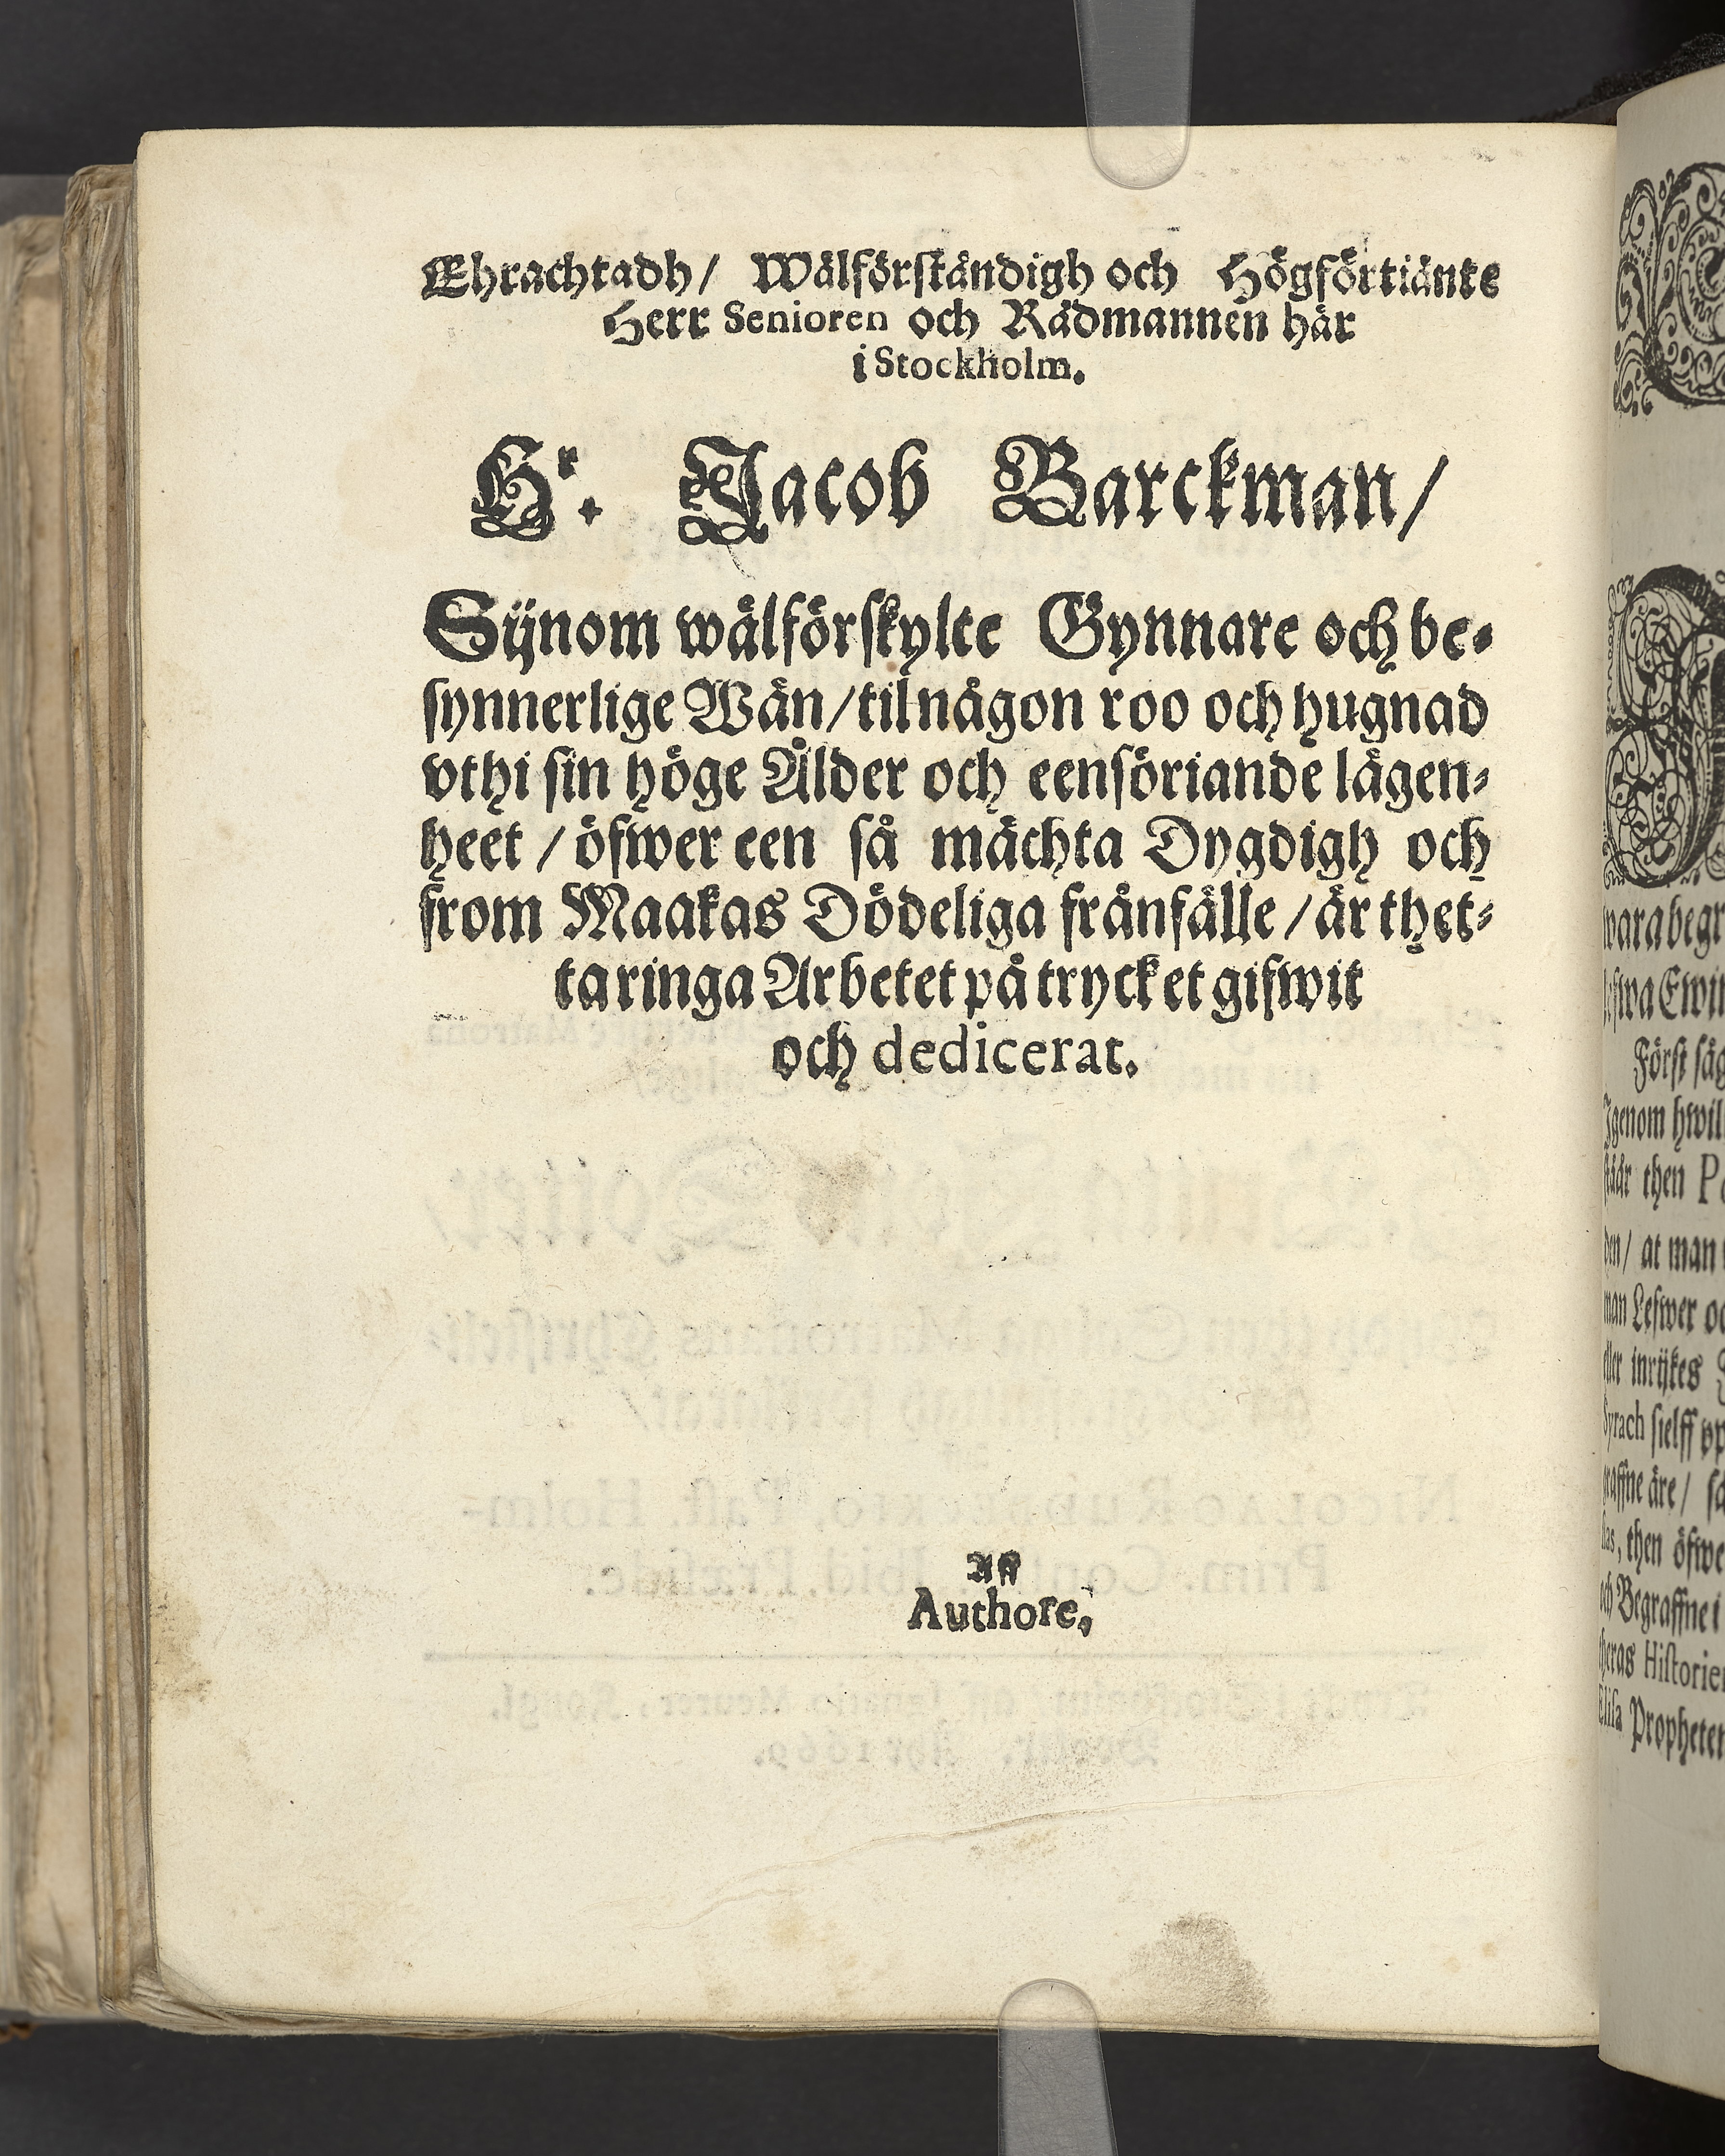 Ehrachtadh / Wälförståndigh och Högförtiänte
Herr Senioren och Rådmannen här
i Stockholm.
Hr. Jacob Barckman /
Sijnom wälförskylte Gynnare och be-
synnerlige Wän / til någon roo och hugnad
vthi sin höge Ålder och eensöriande lägen-
heet / öfwer een så mächta Dygdigh och
from Maakas Dödeliga frånfälle / är thet-
ta ringa Arbetet på trycket gifwit
och dedicerat.
Aff
Authore.
wara begr
Först säg
Igenom hwil
then
at man
man Lefwer
eller inrijkes
Syrach sielff
äre /
then öfwe
och Begraffne i
Historien
Elisa Propheten